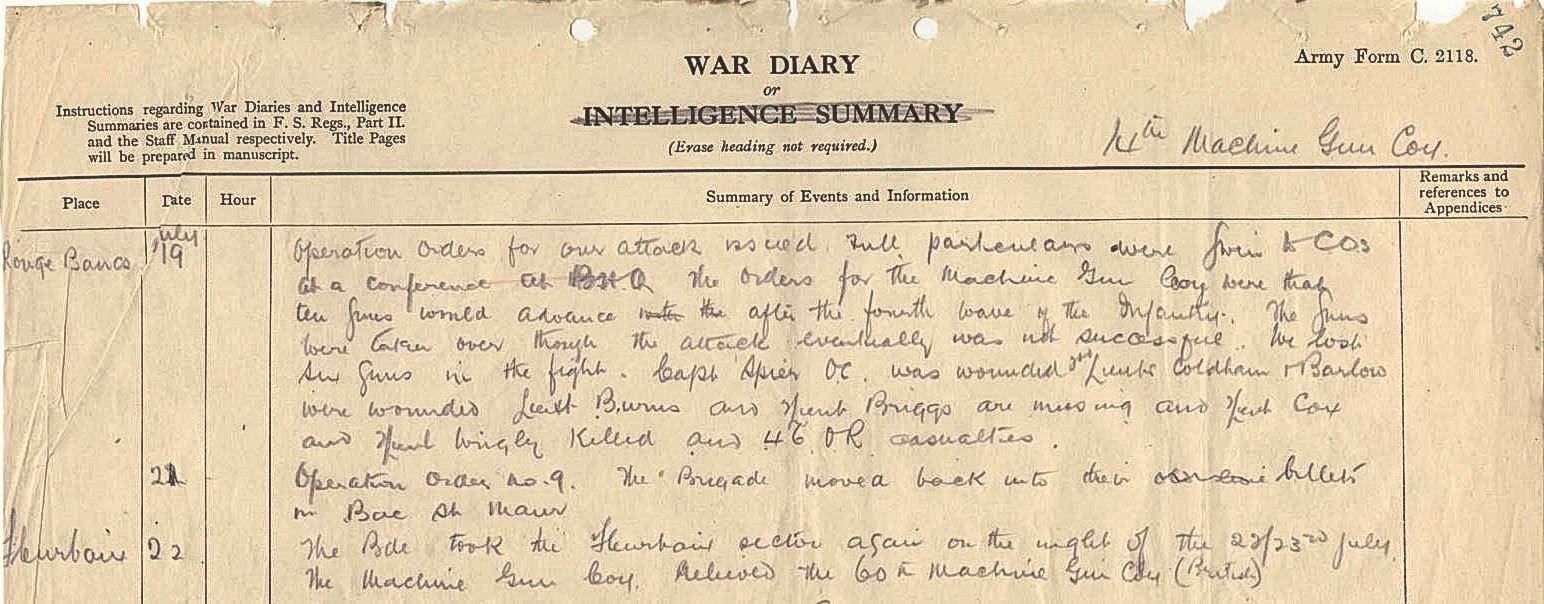 742
Army Form C. 2118.
WAR DIARY
or
INTELLIGENCE SUMMARY
(Erase heading not required.)
Instructions regarding War Diaries and Intelligence
Summaries are contained in F. S. Regs., Part II.
and the Staff Manual respectively. Title Pages
will be prepared in manuscript.
14th Machine Gun Coy.
Place Date Hour Summary of Events and Information Remarks and references to Appendices
Rouge Bancs July 19 Operation Orders for our attack issued. Full particulars were given to COs
at a conference at BHQ The orders for the Machine Gun Coy were that
ten guns would advance after the fourth wave of the Infantry. The guns
were taken over though the attack eventually was not successful. We lost
six guns in the fight. Capt Spier OC. was wounded 2nd Lieuts Coldham & Barlow
were wounded Lieut Burns and Lieut Briggs are missing and Lieut Cox
and Lieut Wrigly Killed and 46 OR casualties.
21 Operation Order No. 9. The Brigade moved back into their billets
in Bac St Maur
Fleurbaix 22 The Bde took the Fleurbaix sector again on the night of the 22/23rd July.
The Machine Gun Coy. Relieved the 60th Machine Gun Coy (British)